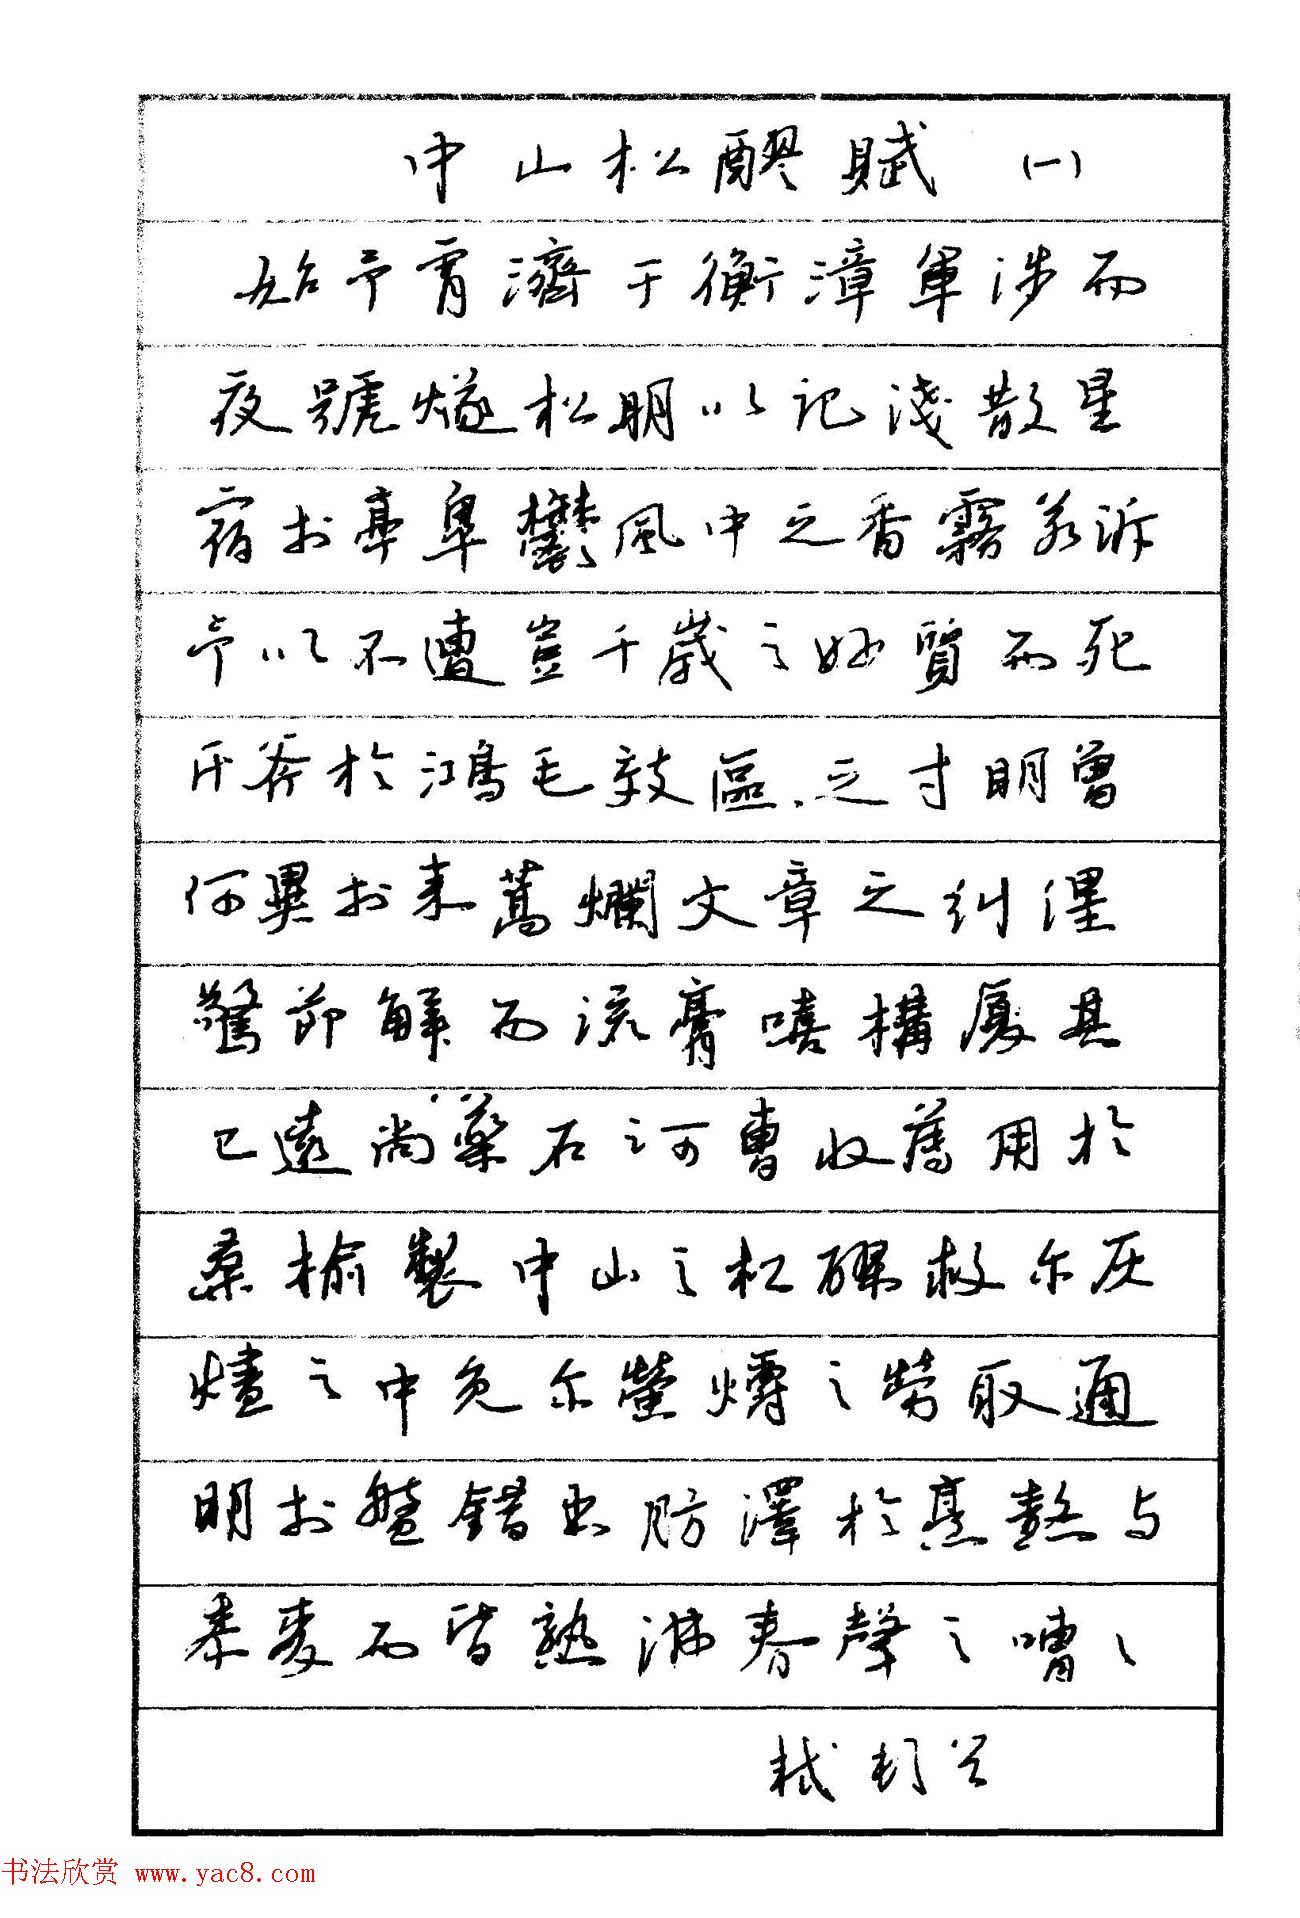 中山松醪賦 (一)
始予宵濟于衡漳軍涉而
夜號燧松明以記淺散星
宿於亭皋鬱風中之香霧若訴
予以不遭豈千歲之妙質而死
斤斧於鴻毛效區、之寸明曾
何異於束蒿爛文章之糾纏
驚節解而流膏嘻構廈其
已遠尚藥石之可曹收薄用於
桑榆製中山之松醪救尔灰
燼之中免尔螢爝之勞取通
明於盤錯出肪澤於烹熬与
黍麥而皆熟沸春聲之嘈、
书法欣赏 www.yac8.com